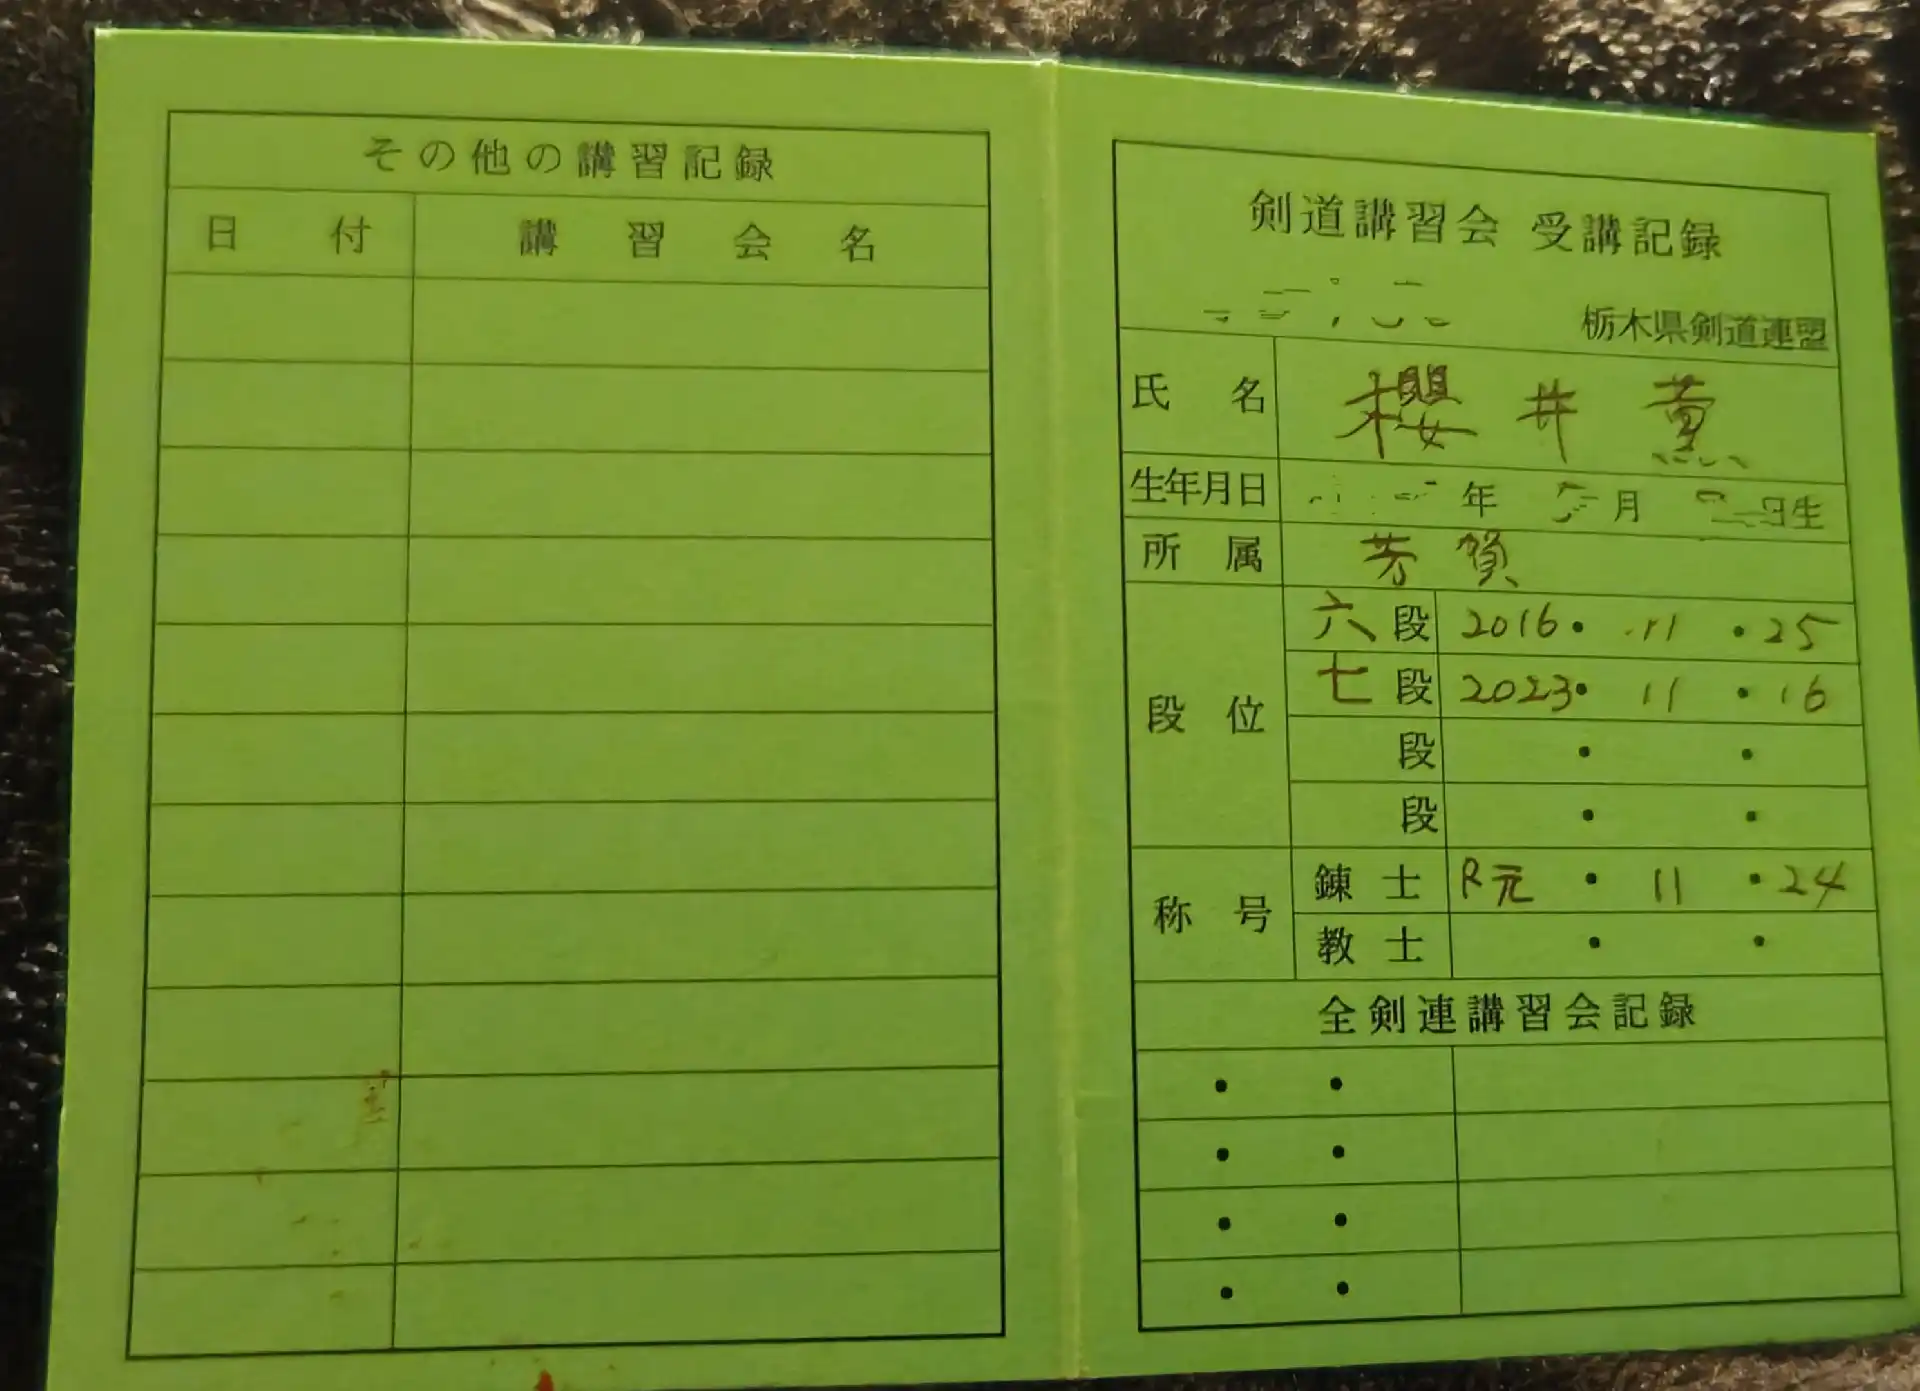 その他の講習記録
日付 講習会名
剣道講習会 受講記録
栃木県剣道連盟
氏名 櫻井薫
生年月日 年 月 日生
所属 芳賀
段位
六段 2016・11・25
七段 2023・11・16
段 ・ ・
段 ・ ・
称号
錬士 R元・11・24
教士 ・ ・
全剣連講習会記録
・ ・
・ ・
・ ・
・ ・